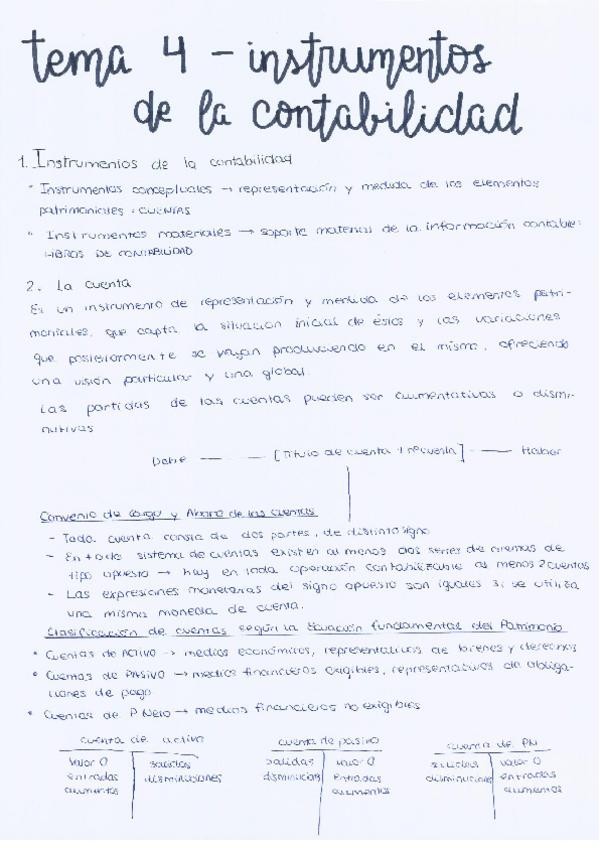 tema 4 - instrumentos
de la contabilidad
1. Instrumentos de la contabilidad
• Instrumentos conceptuales → representación y medida de los elementos
patrimoniales: CUENTAS
• Instrumentos materiales → soporte material de la información contable:
LIBROS DE CONTABILIDAD
2. La cuenta
Es un instrumento de representación y medida de los elementos patri-
moniales, que capta la situación inicial de éstos y las variaciones
que posteriormente se vayan produciendo en el mismo, ofreciendo
una visión particular y una global.
Las partidas de las cuentas pueden ser aumentativas o dismi-
nutivas
Debe — [Título de cuenta] — Haber
Convenio de Cargo y Abono de las cuentas
- Toda cuenta consta de dos partes, de distinto signo
- En todo sistema de cuentas existen al menos dos series de cuentas de
tipo opuesto → hay en toda operación contabilizable al menos 2 cuentas
- Las expresiones monetarias del signo opuesto son iguales si se utiliza
una misma moneda de cuenta.
Clasificación de cuentas según la Ecuación fundamental del Patrimonio
• Cuentas de ACTIVO → medios económicos, representativas de bienes y derechos
• Cuentas de PASIVO → medios financieros exigibles, representativas de obliga-
ciones de pago
• Cuentas de P Neto → medios financieros no exigibles
cuenta de activo cuenta de pasivo cuenta de PN
Valor 0 salidas salidas valor 0 salidas valor 0
entradas disminuciones disminucion entradas disminuciones entradas
aumentos aumentos aumentos